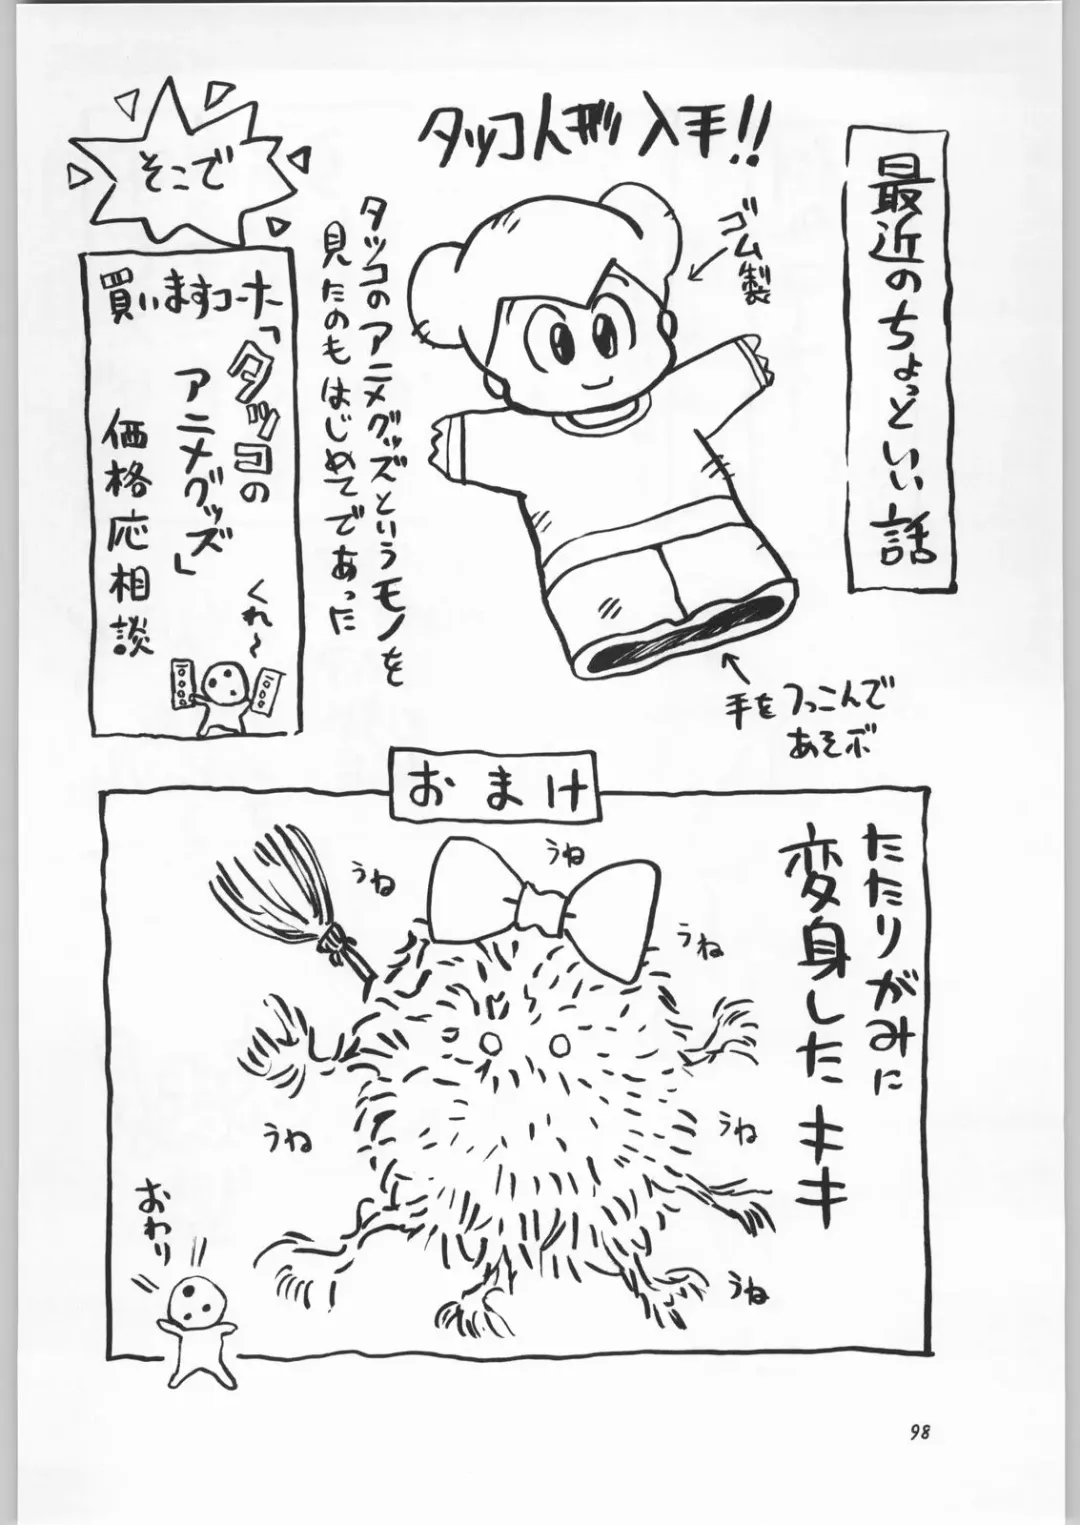 最近のちょっといい話
タッコ人形入手!!
ゴム製
手をつっこんで
あそボ
タッコのアニメグッズというモノを
見たのもはじめてであった
そこで
買いますコーナー
「タッコの
アニメグッズ」
価格応相談
くれ〜
おまけ
たたりがみに
変身したキキ
うね
うね
うね
うね
うね
うね
おわり
98